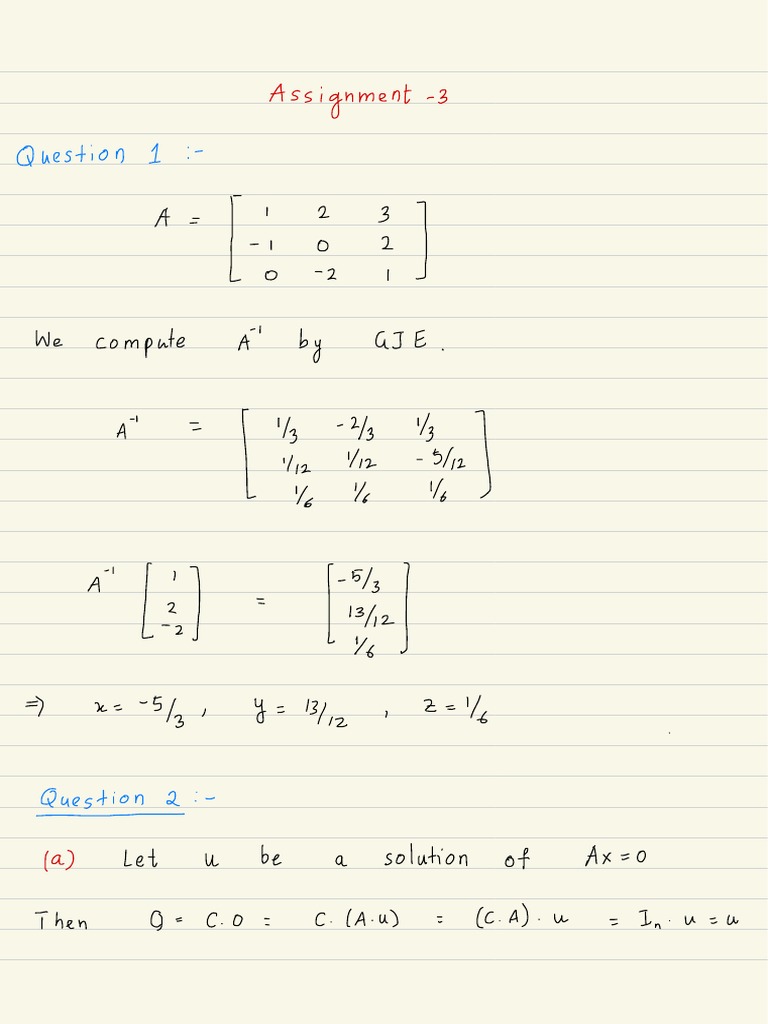 Assignment -3
Question 1 :-
A = [ 1 2 3
-1 0 2
0 -2 1 ]
We compute A⁻¹ by GJE.
A⁻¹ = [ 1/3 -2/3 1/3
1/12 1/12 -5/12
1/6 1/6 1/6 ]
A⁻¹ [ 1 2 -2 ] = [ -5/3 13/12 1/6 ]
⇒ x = -5/3 , y = 13/12 , z = 1/6
Question 2 :-
(a) Let u be a solution of Ax = 0
Then 0 = C.0 = C.(A.u) = (C.A).u = Iₙ.u = u